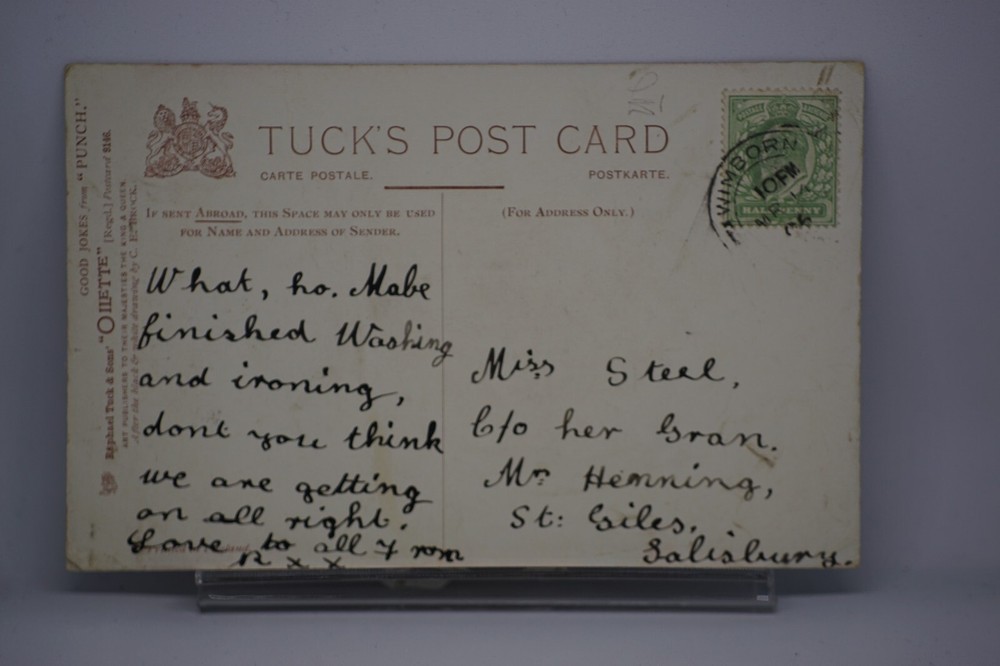 TUCK'S POST CARD
CARTE POSTALE.
POSTKARTE.
IF SENT ABROAD, THIS SPACE MAY ONLY BE USED
FOR NAME AND ADDRESS OF SENDER.
(FOR ADDRESS ONLY.)
GOOD JOKES from "PUNCH."
Raphael Tuck & Sons' "OILETTE" [Regd.] Postcard 8146.
ART PUBLISHERS TO THEIR MAJESTIES THE KING & QUEEN.
After the black & white drawing by C. E. BROCK.
What, ho. Mabe
finished Washing
and ironing,
dont you think
we are getting
on all right.
Love to all from
x x
Miss Steel,
C/o her Gran.
Mrs Henning,
St: Giles,
Salisbury.
WIMBORN
10 PM
HALFPENNY